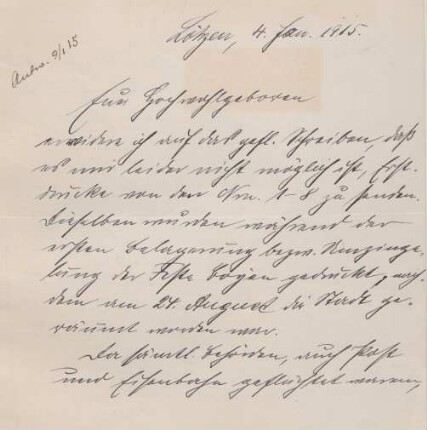 Antw. 9/1 15
Lötzen, 4. Jan. 1915.
Euer Hochwohlgeboren
erwidere ich auf das gefl. Schreiben, daß
es mir leider nicht möglich ist, Erst-
drucke von den Nrn. 1-8 zu senden.
Dieselben wurden während der
ersten Belagerung bezw. Umzinge-
lung der Feste Boyen gedruckt, nach-
dem am 24. August die Stadt ge-
räumt worden war.
Da sämtl. Behörden, auch Post
und Eisenbahn geflüchtet waren,